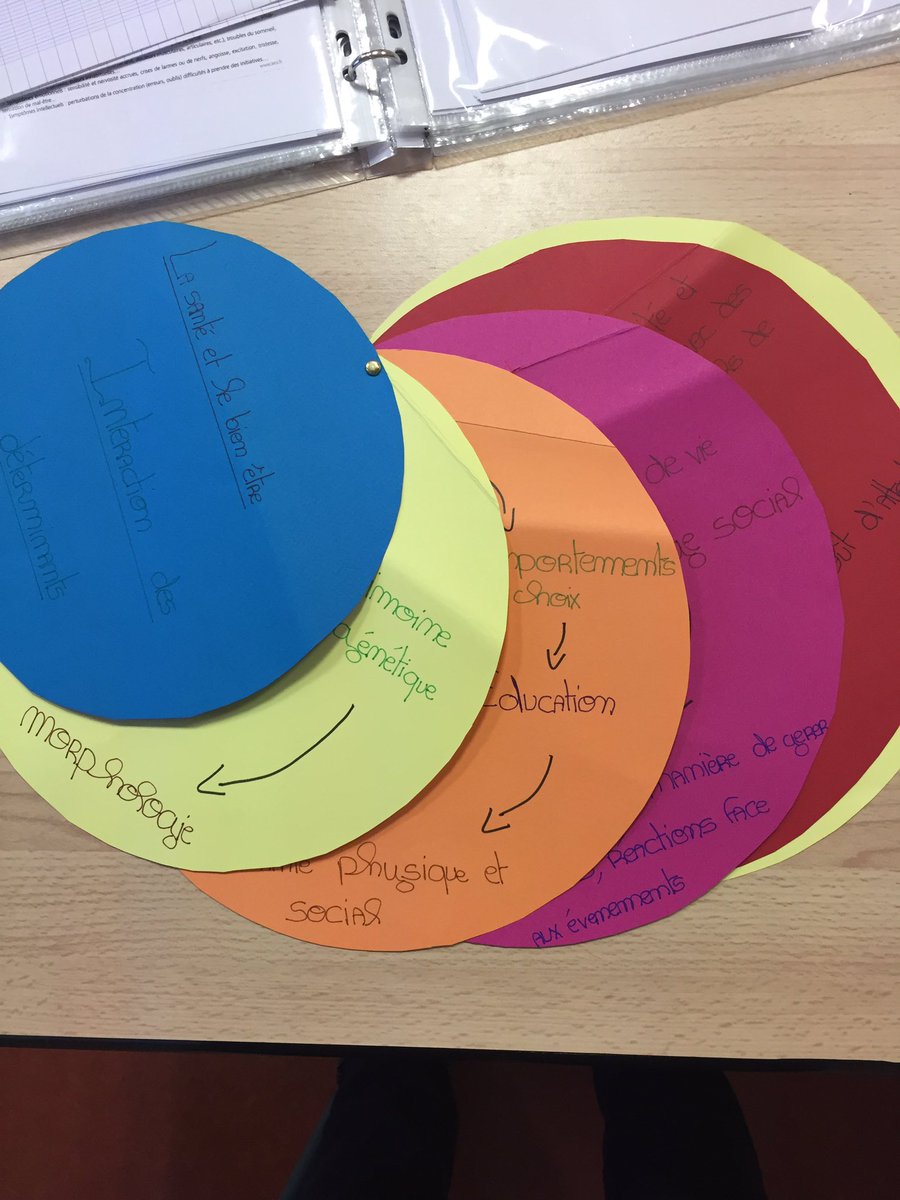 articulaires, etc.), troubles du sommeil,
sensibilité et nervosité accrues, crises de larmes ou de nerfs, angoisse, excitation, tristesse,
sensation de mal-être...
Symptômes intellectuels : perturbations de la concentration (erreurs, oublis) difficultés à prendre des initiatives...
La santé et le bien être
Interaction des
déterminants
imoine
génétique
morphologie
portements
choix
Education
physique et
social
de vie
social
manière de gerer
, reactions face
aux évenements
et
des
de